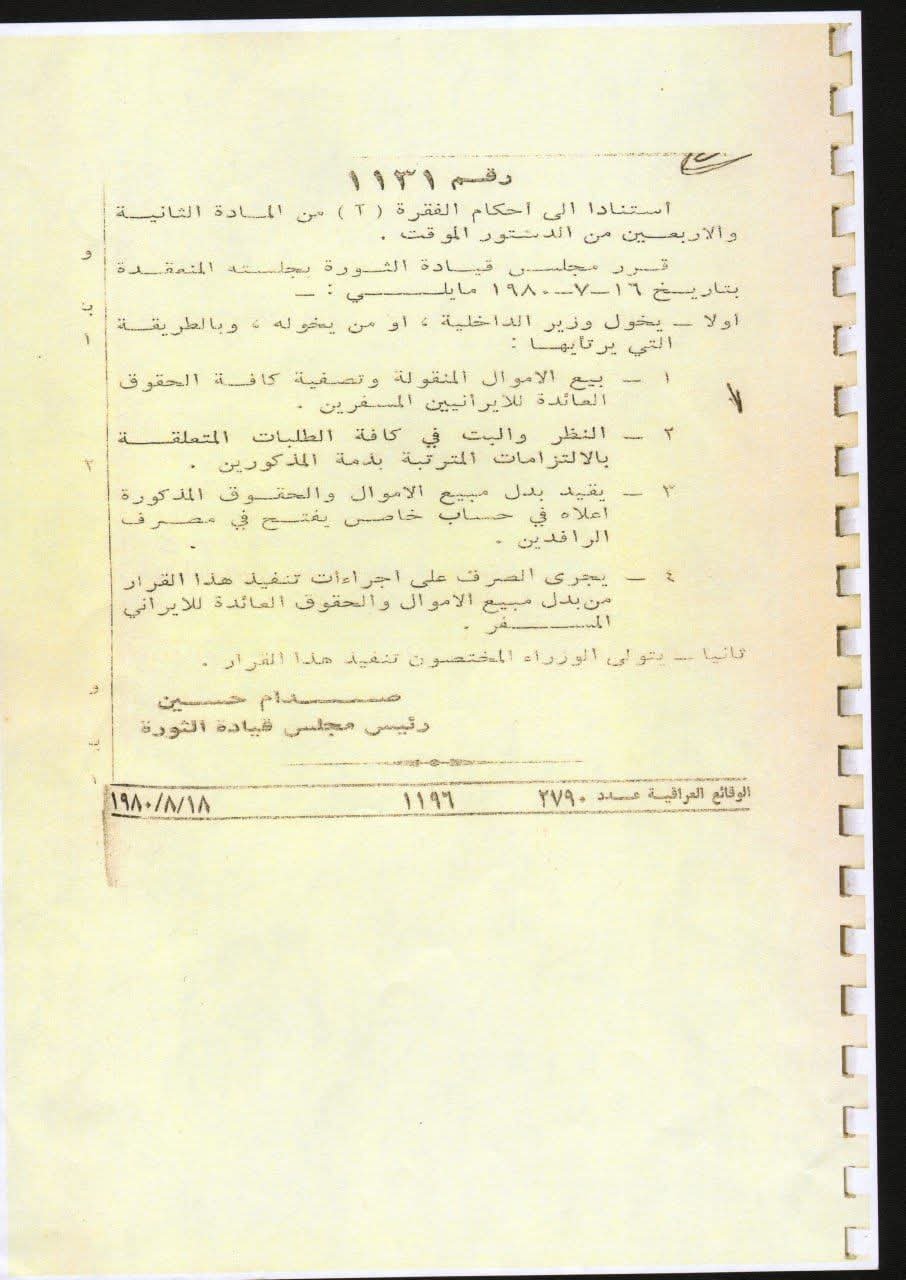 رقم ١١٣١
استنادا الى أحكام الفقرة ( ٢ ) من المادة الثانية
والاربعين من الدستور الموقت .
قرر مجلس قيادة الثورة بجلسته المنعقدة
بتاريخ ١٦-٧-١٩٨٠ مايلي : -
اولا - يخول وزير الداخلية ، او من يخوله ، وبالطريقة
التي يرتأيها :
١ - بيع الاموال المنقولة وتصفية كافة الحقوق
العائدة للايرانيين المسفرين .
٢ - النظر والبت في كافة الطلبات المتعلقة
بالالتزامات المترتبة بذمة المذكورين .
٣ - يقيد بدل مبيع الاموال والحقوق المذكورة
اعلاه في حساب خاص يفتح في مصرف
الرافدين .
٤ - يجرى الصرف على اجراءات تنفيذ هذا القرار
من بدل مبيع الاموال والحقوق العائدة للايراني
المسفر .
ثانيا - يتولى الوزراء المختصون تنفيذ هذا القرار .
صدام حسين
رئيس مجلس قيادة الثورة
الوقائع العراقية عدد ٢٧٩٠ ١١٩٦ ١٩٨٠/٨/١٨